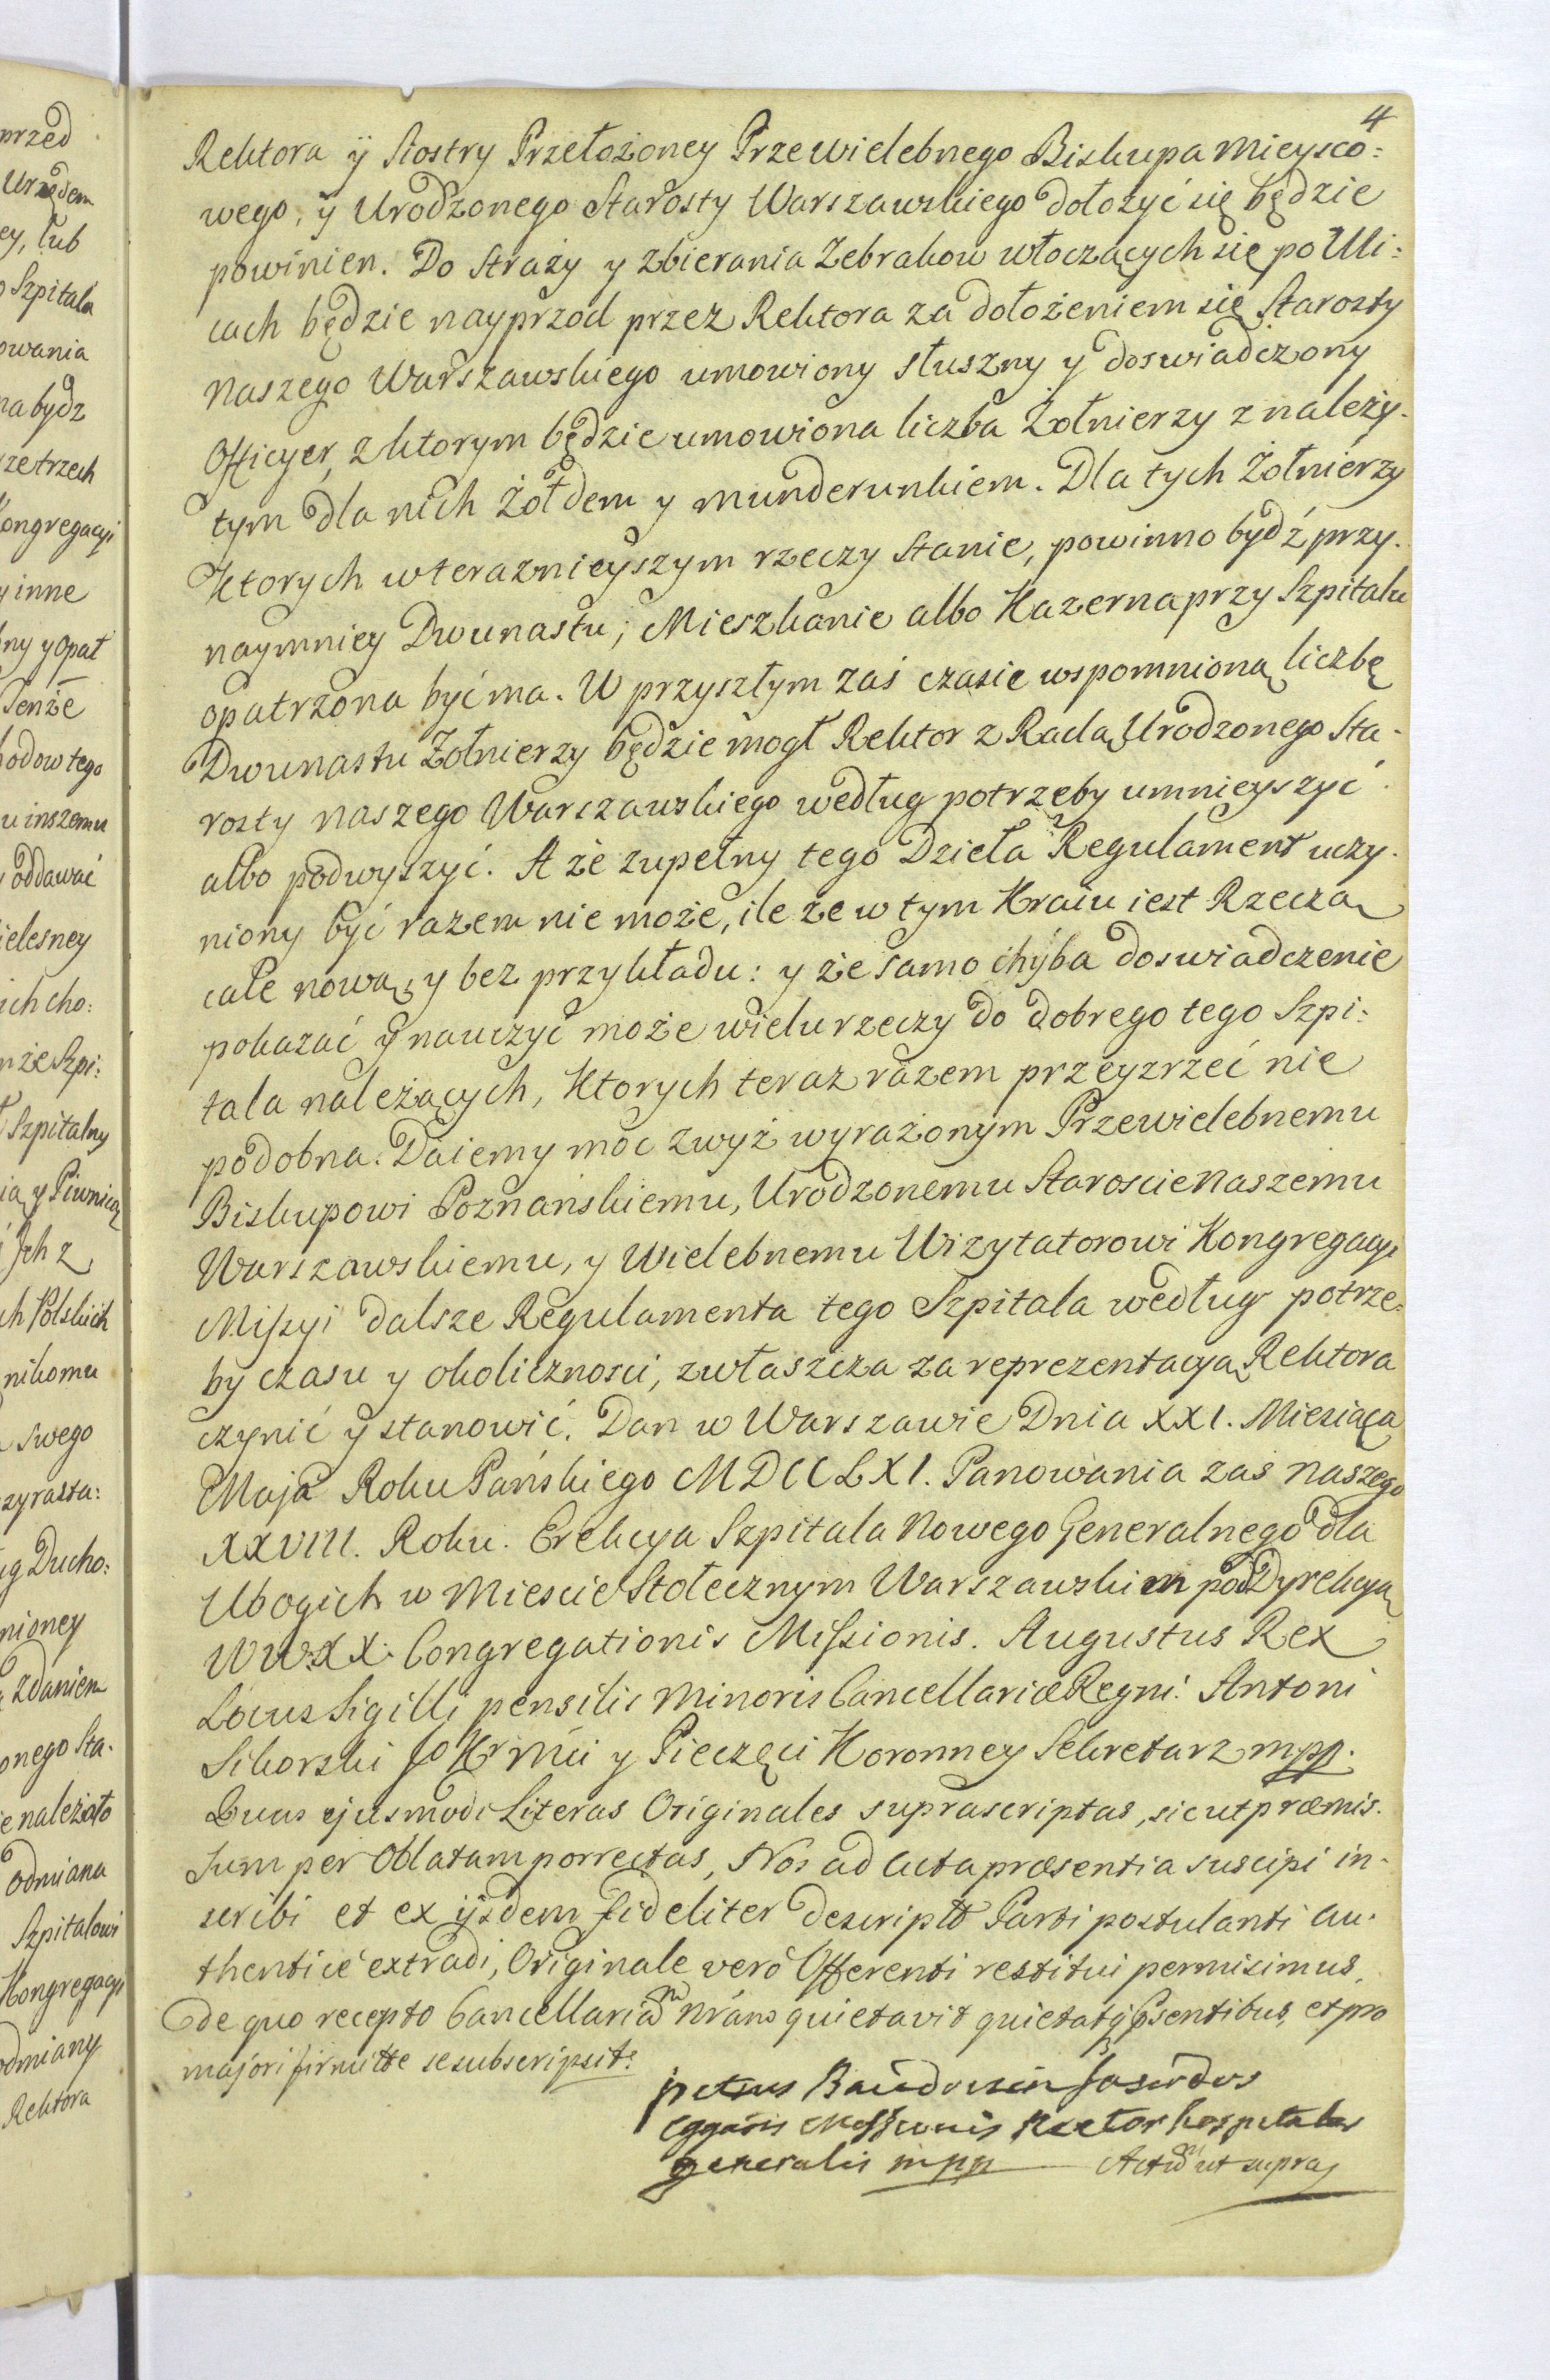 4
Rektora ÿ Siostry Przełożoney Przewielebnego Biskupa mieysco:
wego, y Urodzonego Starosty Warszawskiego dołożyć się będzie
powinien. Do Straży y zbierania Zebrakow włoczących się po Uli:
cach będzie nayprzod przez Rektora za dołożeniem się Starosty
naszego Warszawskiego umowiony słuszny y doswiadczony
Officyer, z ktorym będzie umowiona liczba Żołnierzy z należy.
tym dla nich Żołdem y munderunkiem. Dla tych Żołnierzy
Ktorych w teraznieyszym rzeczy Stanie, powinno bydź przy.
naymniey Dwunastu; Mieszkanie albo Kazerna przy Szpitalu
opatrzona być ma. W przyszłym zaś czasie wspomnioną liczbę
Dwunastu Żołnierzy będzie mogł Rektor z Radą Urodzonego Sta.
rosty naszego Warszawskiego według potrzeby umnieyszyć
albo podwyszyć. A że zupełny tego Dzieła Regulament uczy.
niony być razem nie może, ile że w tym Kraiu iest Rzeczą
cale nową, y bez przykładu: y że samo chyba doswiadczenie
pokazać y nauczyć może wielu rzeczy do dobrego tego Szpi:
tala należących, Ktorych teraz razem przeyzrzeć nie
podobna. Daiemy moc zwyż wyrażonym Przewielebnemu
Biskupowi Poznańskiemu, Urodzonemu Staroscie naszemu
Warszawskiemu, y Wielebnemu Wizytatorowi Kongregacyi
Missyi dalsze Regulamenta tego Szpitala według potrze:
by czasu y okolicznosci, zwłaszcza za reprezentacyą Rektora
czynić y stanowić. Dan w Warszawie Dnia XXI. Miesiąca
Maja Roku Pańskiego MDCCLXI. Panowania zaś naszego
XXVIII. Roku. Erekcya Szpitala Nowego Generalnego dla
Ubogich w Miescie Stołecznym Warszawskim pod Dyrekcyą
WW. XX. Congregationis Missionis. Augustus Rex
Locus Sigilli pensilis Minoris Cancellariæ Regni. Antoni
Sikorski JoKrMci y Pieczęci Koronney Sekretarz mpp.
Quas ejusmodi Literas Originales suprascriptas, sicut præmis.
sum per Oblatam porrectas, Nos ad Acta præsentia suscipi in-
scribi et ex ijsdem fideliter descripto Parti postulanti au.
thenticè extradi, Originale verò Offerenti restitui permisimus,
de quo recepto Cancellariam nrãm quietavit quietatq; psentibus, et pro
majori firmitte se subscripsit.
petrus Baudouin Saserdos
Cggãōis Missionis Rector hospitales
generalis mpp Actum ut supra
przed
Urzędem
ey, lub
Szpitala
owania
na bydz
ze trzech
Kongregacyi
y inne
ny y opat
Tenże
hodow tego
u inszemu
oddawać
ielesney
ich cho:
że Szpi:
Szpitalny
ią y Piwnicą
Jch z
ch Polskich
nikomu
swego
zyrasta:
ug Ducho:
nioney
zdaniem
onego Sta.
e należało
odmiana
Szpitalowi
Kongregacyi
odmiany
Rektora